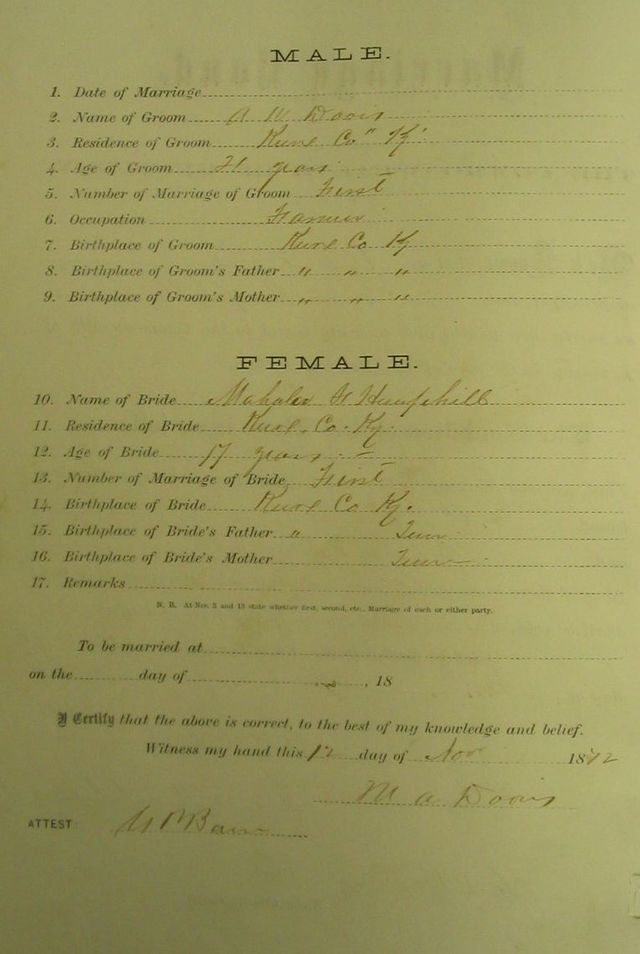 MALE.
1. Date of Marriage
2. Name of Groom A W Davis
3. Residence of Groom Co " Ky
4. Age of Groom years
5. Number of Marriage of Groom First
6. Occupation Farmer
7. Birthplace of Groom Co Ky
8. Birthplace of Groom's Father " " "
9. Birthplace of Groom's Mother " " "
FEMALE.
10. Name of Bride Mahala H Hemphill
11. Residence of Bride Co. Ky.
12. Age of Bride 17 years
13. Number of Marriage of Bride First
14. Birthplace of Bride Co Ky.
15. Birthplace of Bride's Father " Tenn
16. Birthplace of Bride's Mother Tenn
17. Remarks
N. B. At Nos. 5 and 13 state whether first, second, etc., Marriage of each or either party.
To be married at
on the day of , 18
I Certify that the above is correct, to the best of my knowledge and belief.
Witness my hand this 12 day of Nov 1872
M A Davis
ATTEST: